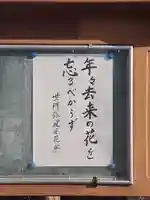 年々去来の花を
忘るべからず
世阿弥 風姿花伝